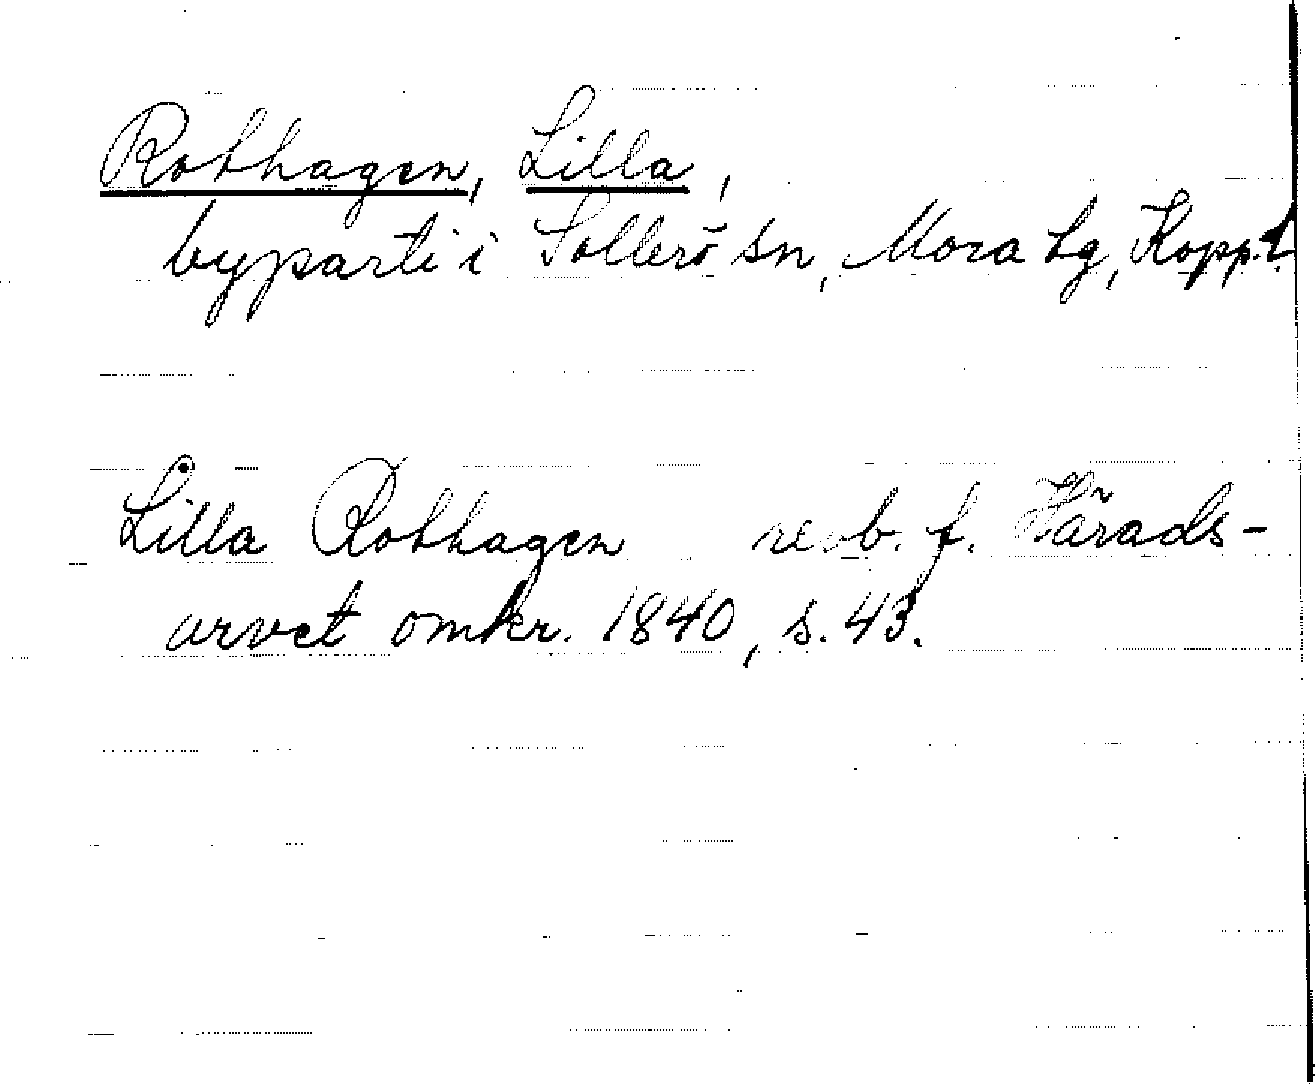 Rothagen, Lilla,
byparti i Sollerö sn, Mora tg, Kopp. l.
Lilla Rothagen reub. f. Härads-
arvet omkr. 1840, s. 43.